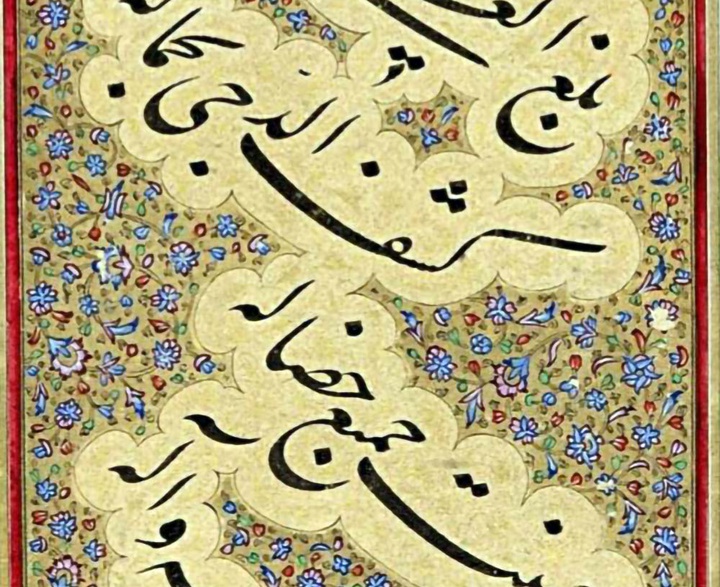 بلغ العلی
کشف الدجی بجماله
حسنت جمیع خصاله
و آله